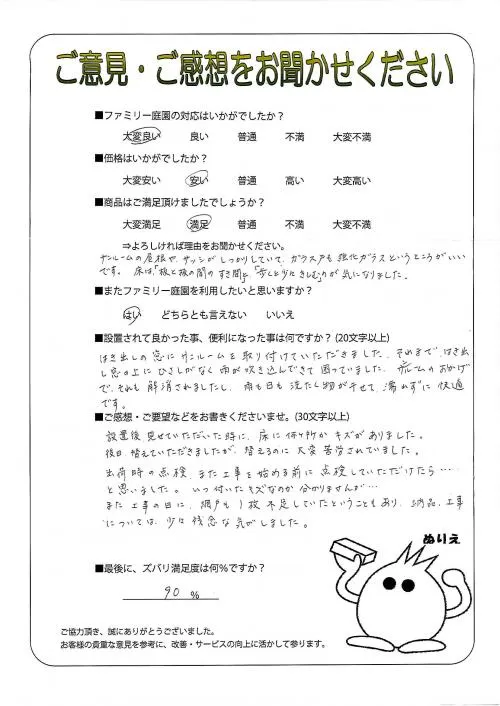 ご意見・ご感想をお聞かせください
■ファミリー庭園の対応はいかがでしたか？
大変良い 良い 普通 不満 大変不満
■価格はいかがでしたか？
大変安い 安い 普通 高い 大変高い
■商品はご満足頂けましたでしょうか？
大変満足 満足 普通 不満 大変不満
⇒よろしければ理由をお聞かせください。
サンルームの屋根や、サッシがしっかりしていて、ガラス戸も強化ガラスというところがいい
です。床は、「板と板の間のすき間」と「歩くと少々きしむ」のが気になりました。
■またファミリー庭園を利用したいと思いますか？
はい どちらとも言えない いいえ
■設置されて良かった事、便利になった事は何ですか？(20文字以上)
はき出しの窓にサンルームを取り付けていただきました。それまで、はき出
し窓の上にひさしがなく雨が吹き込んできて困っていました。サンルームのおかげ
で、それも解消されましたし、雨の日も洗たく物が干せて、濡れずに快適
です。
■ご感想・ご要望などをお書きくださいませ。(30文字以上)
設置後見せていただいた時に、床に何ヶ所かキズがありました。
後日替えていただきましたが、替えるのに大変苦労されていました。
出荷時の点検、また工事を始める前に点検していただけたら……
と思いました。いつ付いたキズなのか分かりませんが…
また工事の日に、網戸も1枚不足していたということもあり、納品、工事
については、少々残念な気がしました。
ぬりえ
■最後に、ズバリ満足度は何％ですか？
90 ％
ご協力頂き、誠にありがとうございました。
お客様の貴重な意見を参考に、改善・サービスの向上に活かして参ります。